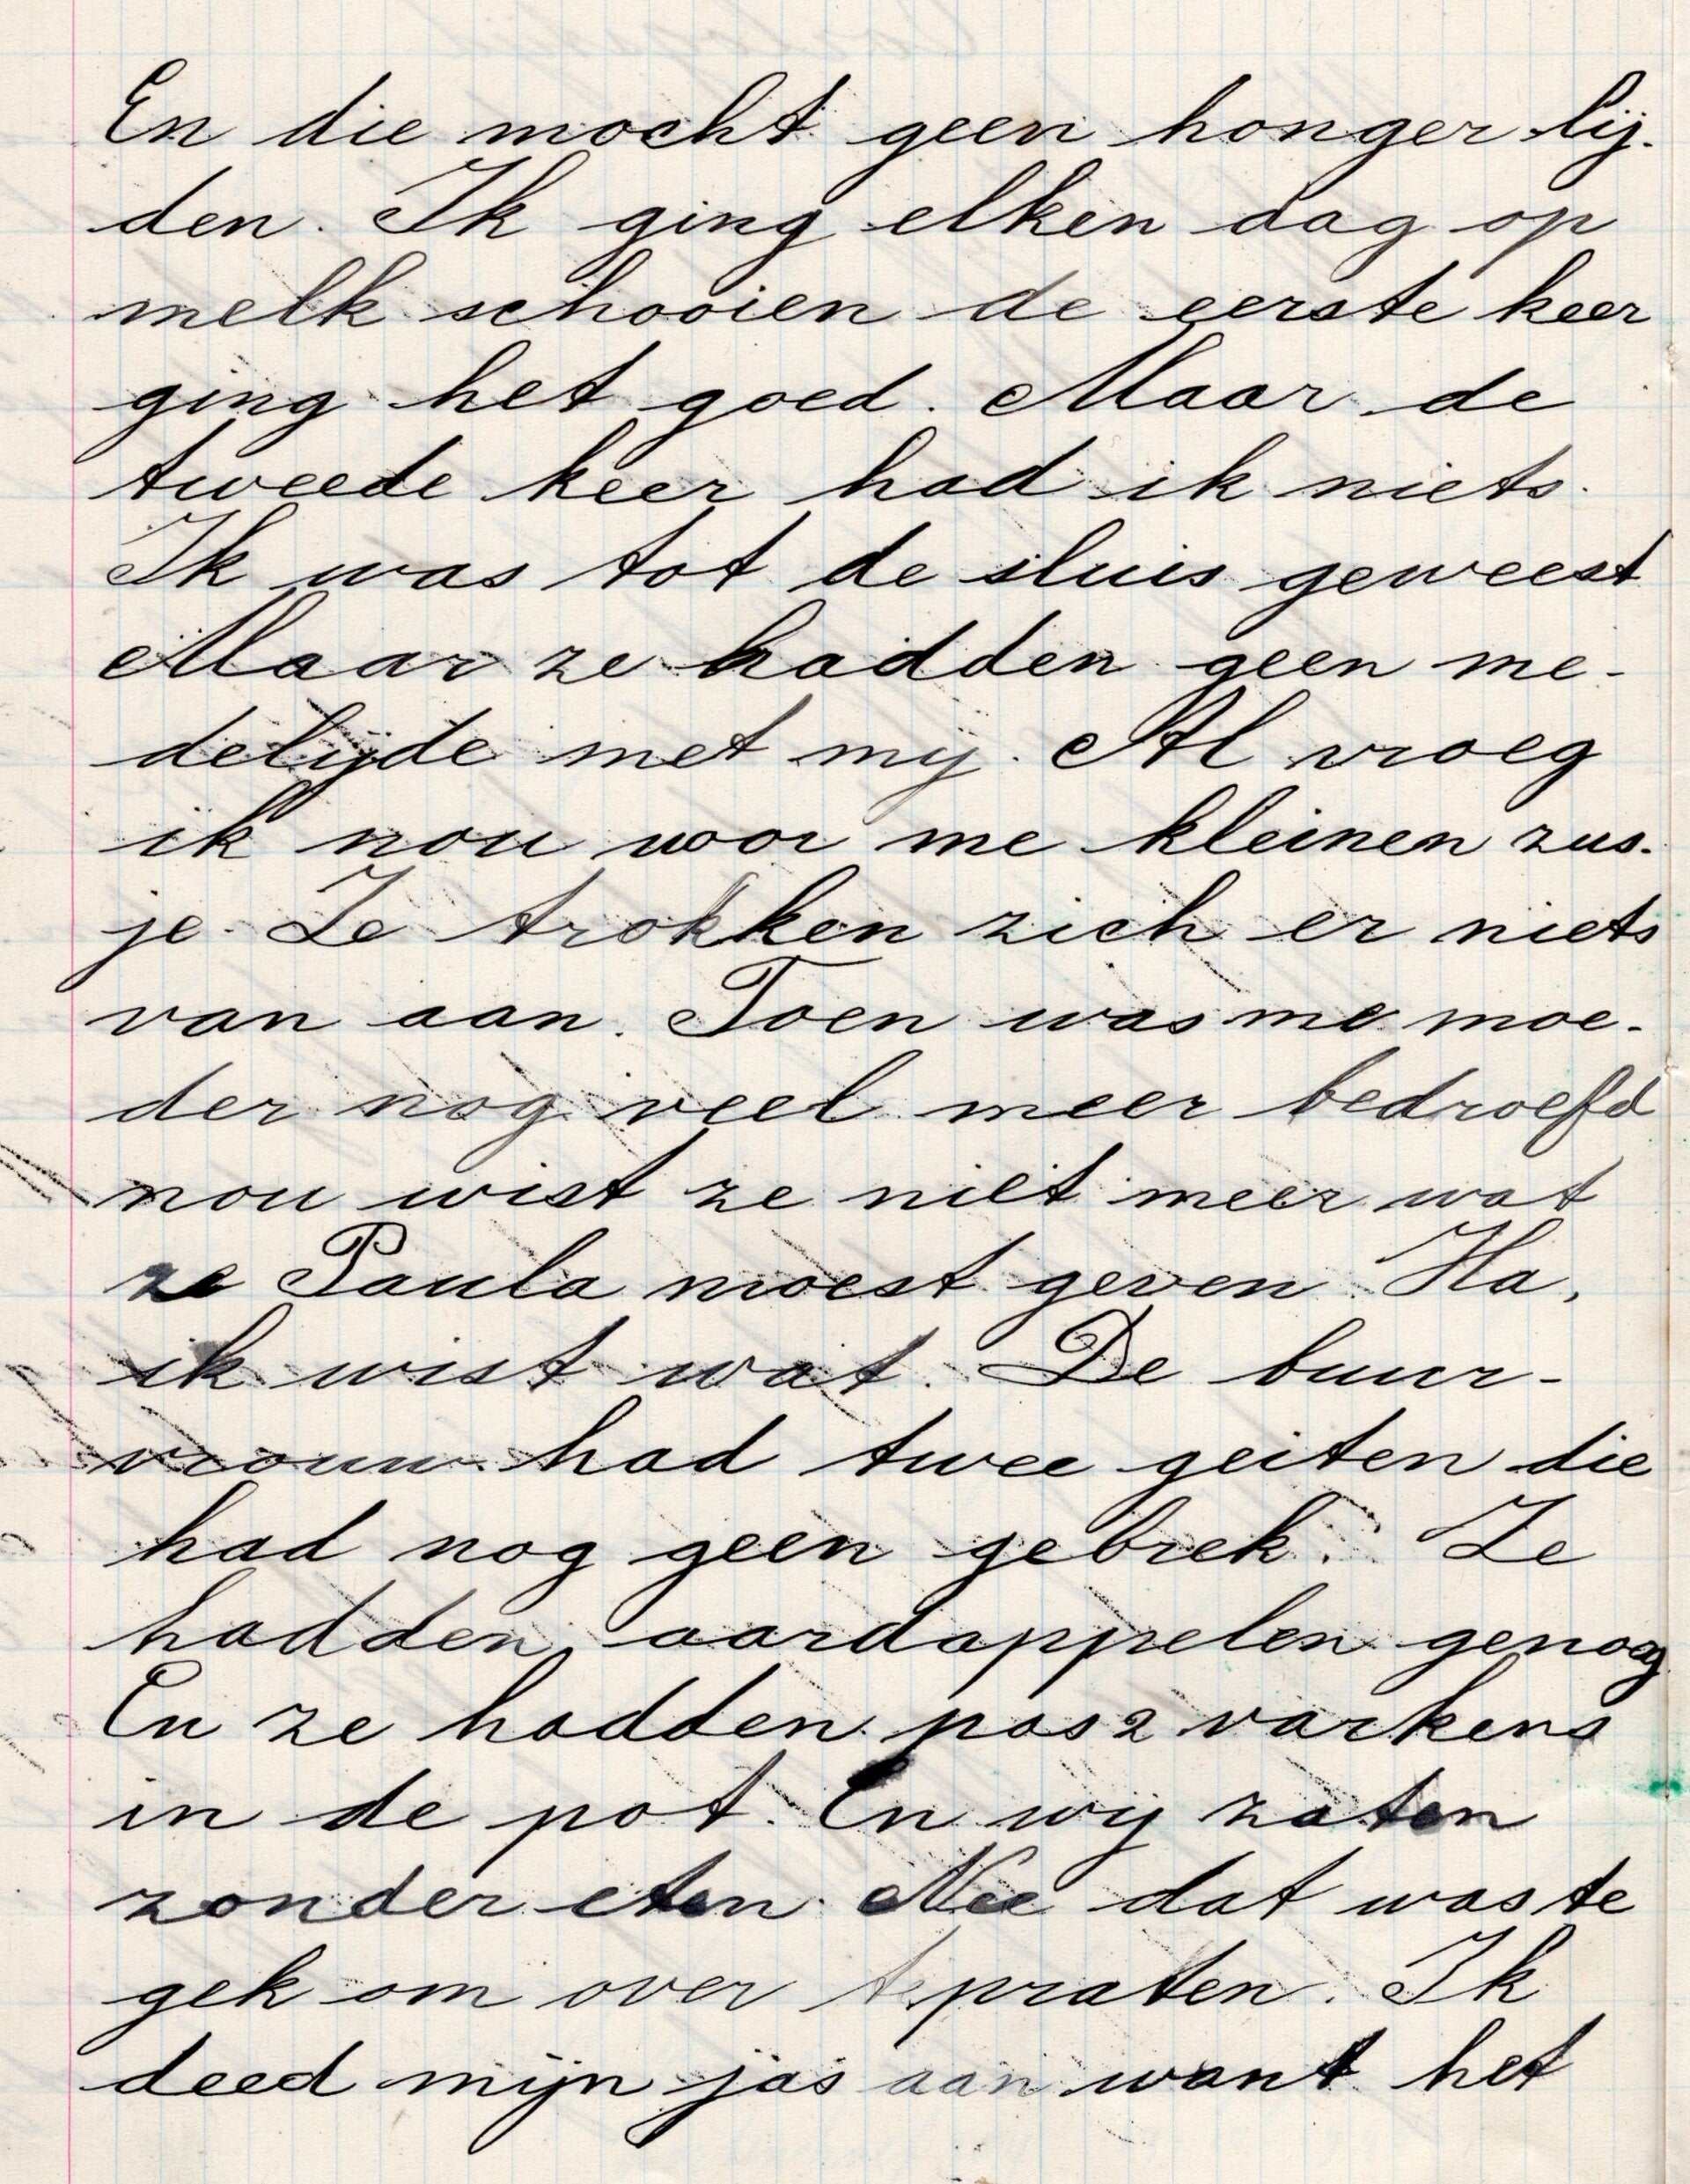 En die mocht geen honger lij-
den. Ik ging elken dag op
melk schooien de eerste keer
ging het goed. Maar de
tweede keer had ik niets.
Ik was tot de sluis geweest
Maar ze hadden geen me-
delijde met mij. Al vroeg
ik nou voor me kleinen zus-
je. Ze trokken zich er niets
van aan. Toen was me moe-
der nog veel meer bedroefd
nou wist ze niet meer wat
ze Paula moest geven. Ha,
ik wist wat. De buur-
vrouw had twee geiten die
had nog geen gebrek. Ze
hadden aardappelen genog
En ze hadden pas 2 varkens
in de pot. En wij zaten
zonder eten. Nee dat was te
gek om over te praten. Ik
deed mijn jas aan want het